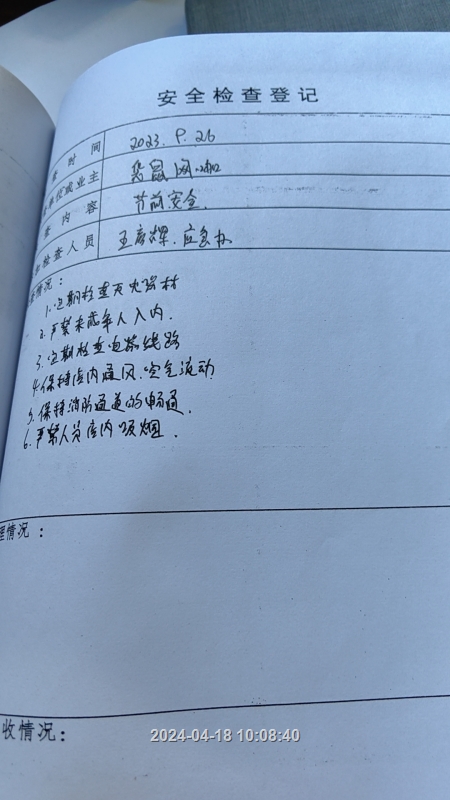 安全检查登记
时间 2023.9.26
单位或业主 鼠网咖
内容 节前安全.
检查人员 王 辉.应急办
情况：
1.定期检查灭火器材
2.严禁未成年人入内.
3.定期检查电器线路
4.保持店内通风.空气流动
5.保持消防通道的畅通.
6.严禁人员店内吸烟.
理情况：
收情况：
2024-04-18 10:08:40